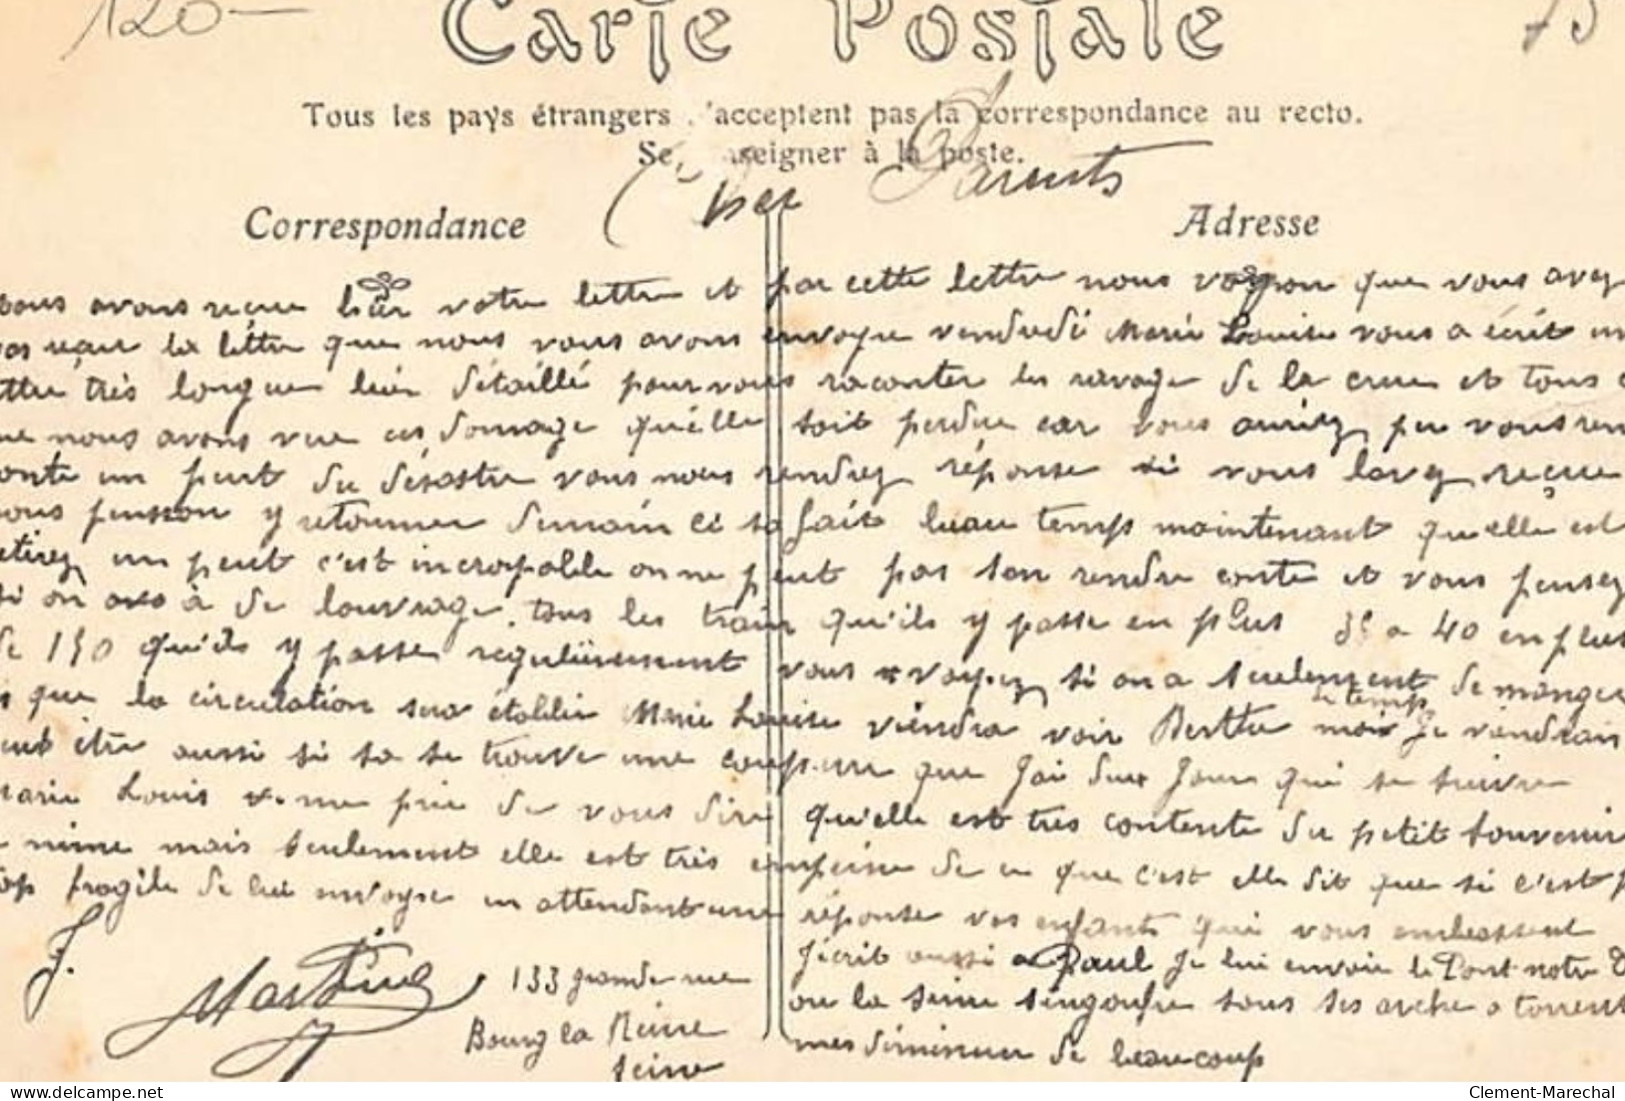 120 —
75
Carte Postale
Tous les pays étrangers n'acceptent pas la correspondance au recto.
Se renseigner à la poste.
Cher Parents
Correspondance
Adresse
nous avons reçue hier votre lettre et par cette lettre nous voyon que vous avez
pas reçue la lettre que nous vous avons envoyer vendredi Marie Louise vous a écrit une
lettre très longue bien détaillé pour vous raconter les ravage de la crue et tous ce
que nous avons vue ces domage qu'elle soit perdue car vous auriez peu vous rendre
conte un peut du désastre vous nous rendrez réponse si vous lavez reçue
nous pension y retourner demain ci sa fait beau temps maintenant qu'elle est
retirez un peut c'est incroyable on ne peut pas s'en rendre conte et vous pensez
si on a de louvrage. tous les train qu'ils y passe en plus 35 a 40 en plus
de 150 qu'ils y passe regulièrement vous voyez si on a seulement de manger
que la circulation sera établie Marie Louise viendra voir Berthe le temps mais je viendrais
peut être aussi si sa se trouve une coupure que j'ai deux jours qui se suivre
Marie Louis me prie de vous dire qu'elle est très contente du petit souvenir
mime mais seulement elle est très de ce que c'est elle dit que si c'est
trop fragile de lui envoyer en attendant une réponse vos enfants qui vous embrassent
J. Martine
133 grande rue
Bourg la Reine
Seine
J'écrit aussi a Paul je lui envoie le Pont notre D
ou la Seine s'engoufre sous ses arche a torrent
mes diminuer de beaucoup
Clement-Marechal
delcampe.net